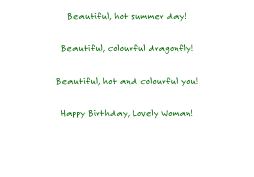 Beautiful, hot summer day!
Beautiful, colourful dragonfly!
Beautiful, hot and colourful you!
Happy Birthday, Lovely Woman!